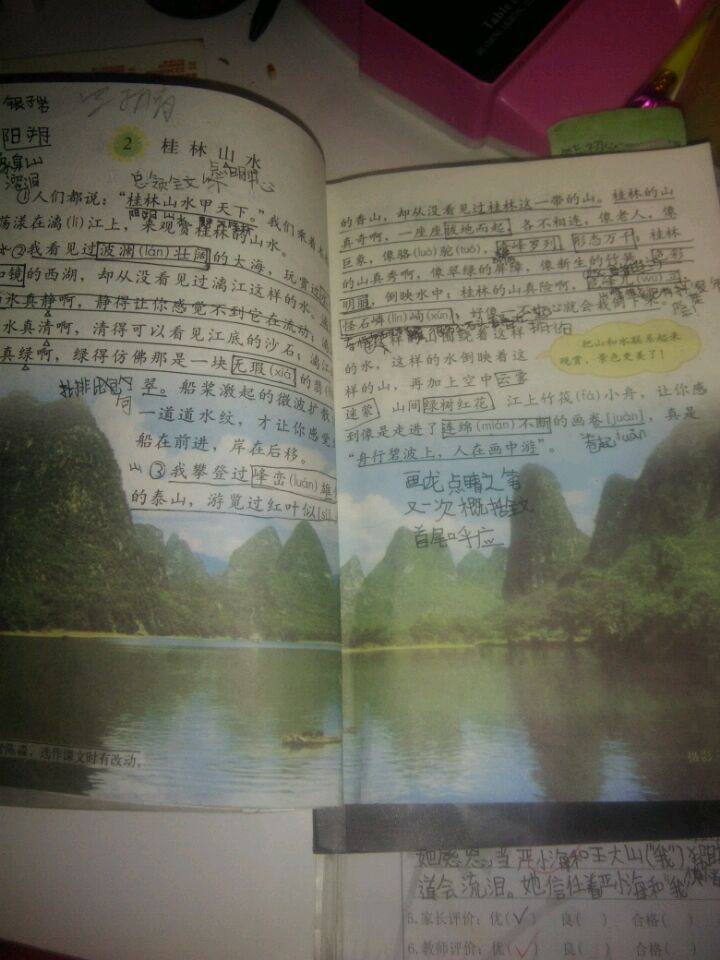 银子岩
阳朔
2 桂林山水
总领全文
点明中心
①人们都说：“桂林山水甲天下。”我们乘着
荡漾在漓(lí)江上，来观赏桂林的山水。
②我看见过波澜(lán)壮阔的大海，玩赏过
如镜的西湖，却从没看见过漓江这样的水。
水真静啊，静得让你感觉不到它在流动；
水真清啊，清得可以看见江底的沙石；漓江
真绿啊，绿得仿佛那是一块无瑕(xiá)的翡
排比句
翠。船桨激起的微波扩散
一道道水纹，才让你感觉
船在前进，岸在后移。
山③我攀登过峰峦(luán)雄
的泰山，游览过红叶似(sì)
陈淼，选作课文时有改动。
的香山，却从没看见过桂林这一带的山。桂林的山
真奇啊，一座座拔地而起，各不相连，像老人，像
巨象，像骆(luò)驼(tuó)，奇峰罗列，形态万千；桂林
的山真秀啊，像翠绿的屏障，像新生的竹笋，色彩
明丽，倒映水中；桂林的山真险啊，危峰兀(wù)立
怪石嶙(lín)峋(xún)，好像一不小心就会栽倒下来。
这样的山围绕着这样
排比句
的水，这样的水倒映着这
样的山，再加上空中云雾
迷蒙，山间绿树红花，江上竹筏(fá)小舟，让你感
到像是走进了连绵(mián)不断的画卷(juàn)，真是
“舟行碧波上，人在画中游”。
把山和水联系起来
观赏，景色更美了！
卷起juǎn
画龙点睛之笔
又一次概括全文
首尾呼应
摄影
她感恩，当严小海和王大山(“我”)
道会流泪。她信任着严小海和“我”
5.家长评价：优(✓) 良( ) 合格( )
6.教师评价：优(✓) 良( ) 合格( )